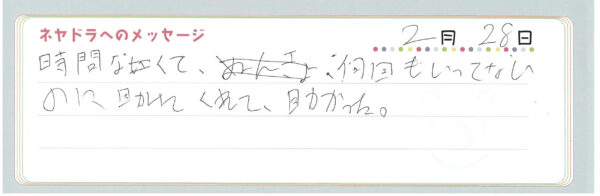 ネヤドラへのメッセージ
2月 28日
時間なくて、何回もいってない
のに助けてくれて、助かった。